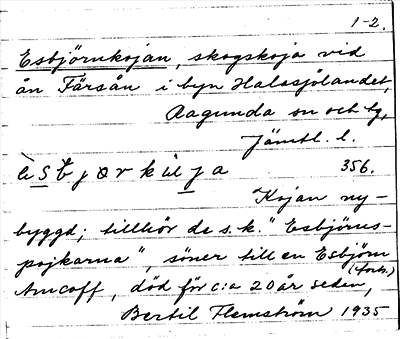 1-2.
Esbjörnkojan, skogskoja vid
ån Färsån i byn Halasjölandet,
Ragunda sn och tg,
Jämtl. l.
356.
Kojan ny-
byggd; tillhör de s.k. "Esbjörns-
pojkarna", söner till en Esbjörn
(forts.)
Amcoff, död för c:a 20 år sedan,
Bertil Flemström 1935